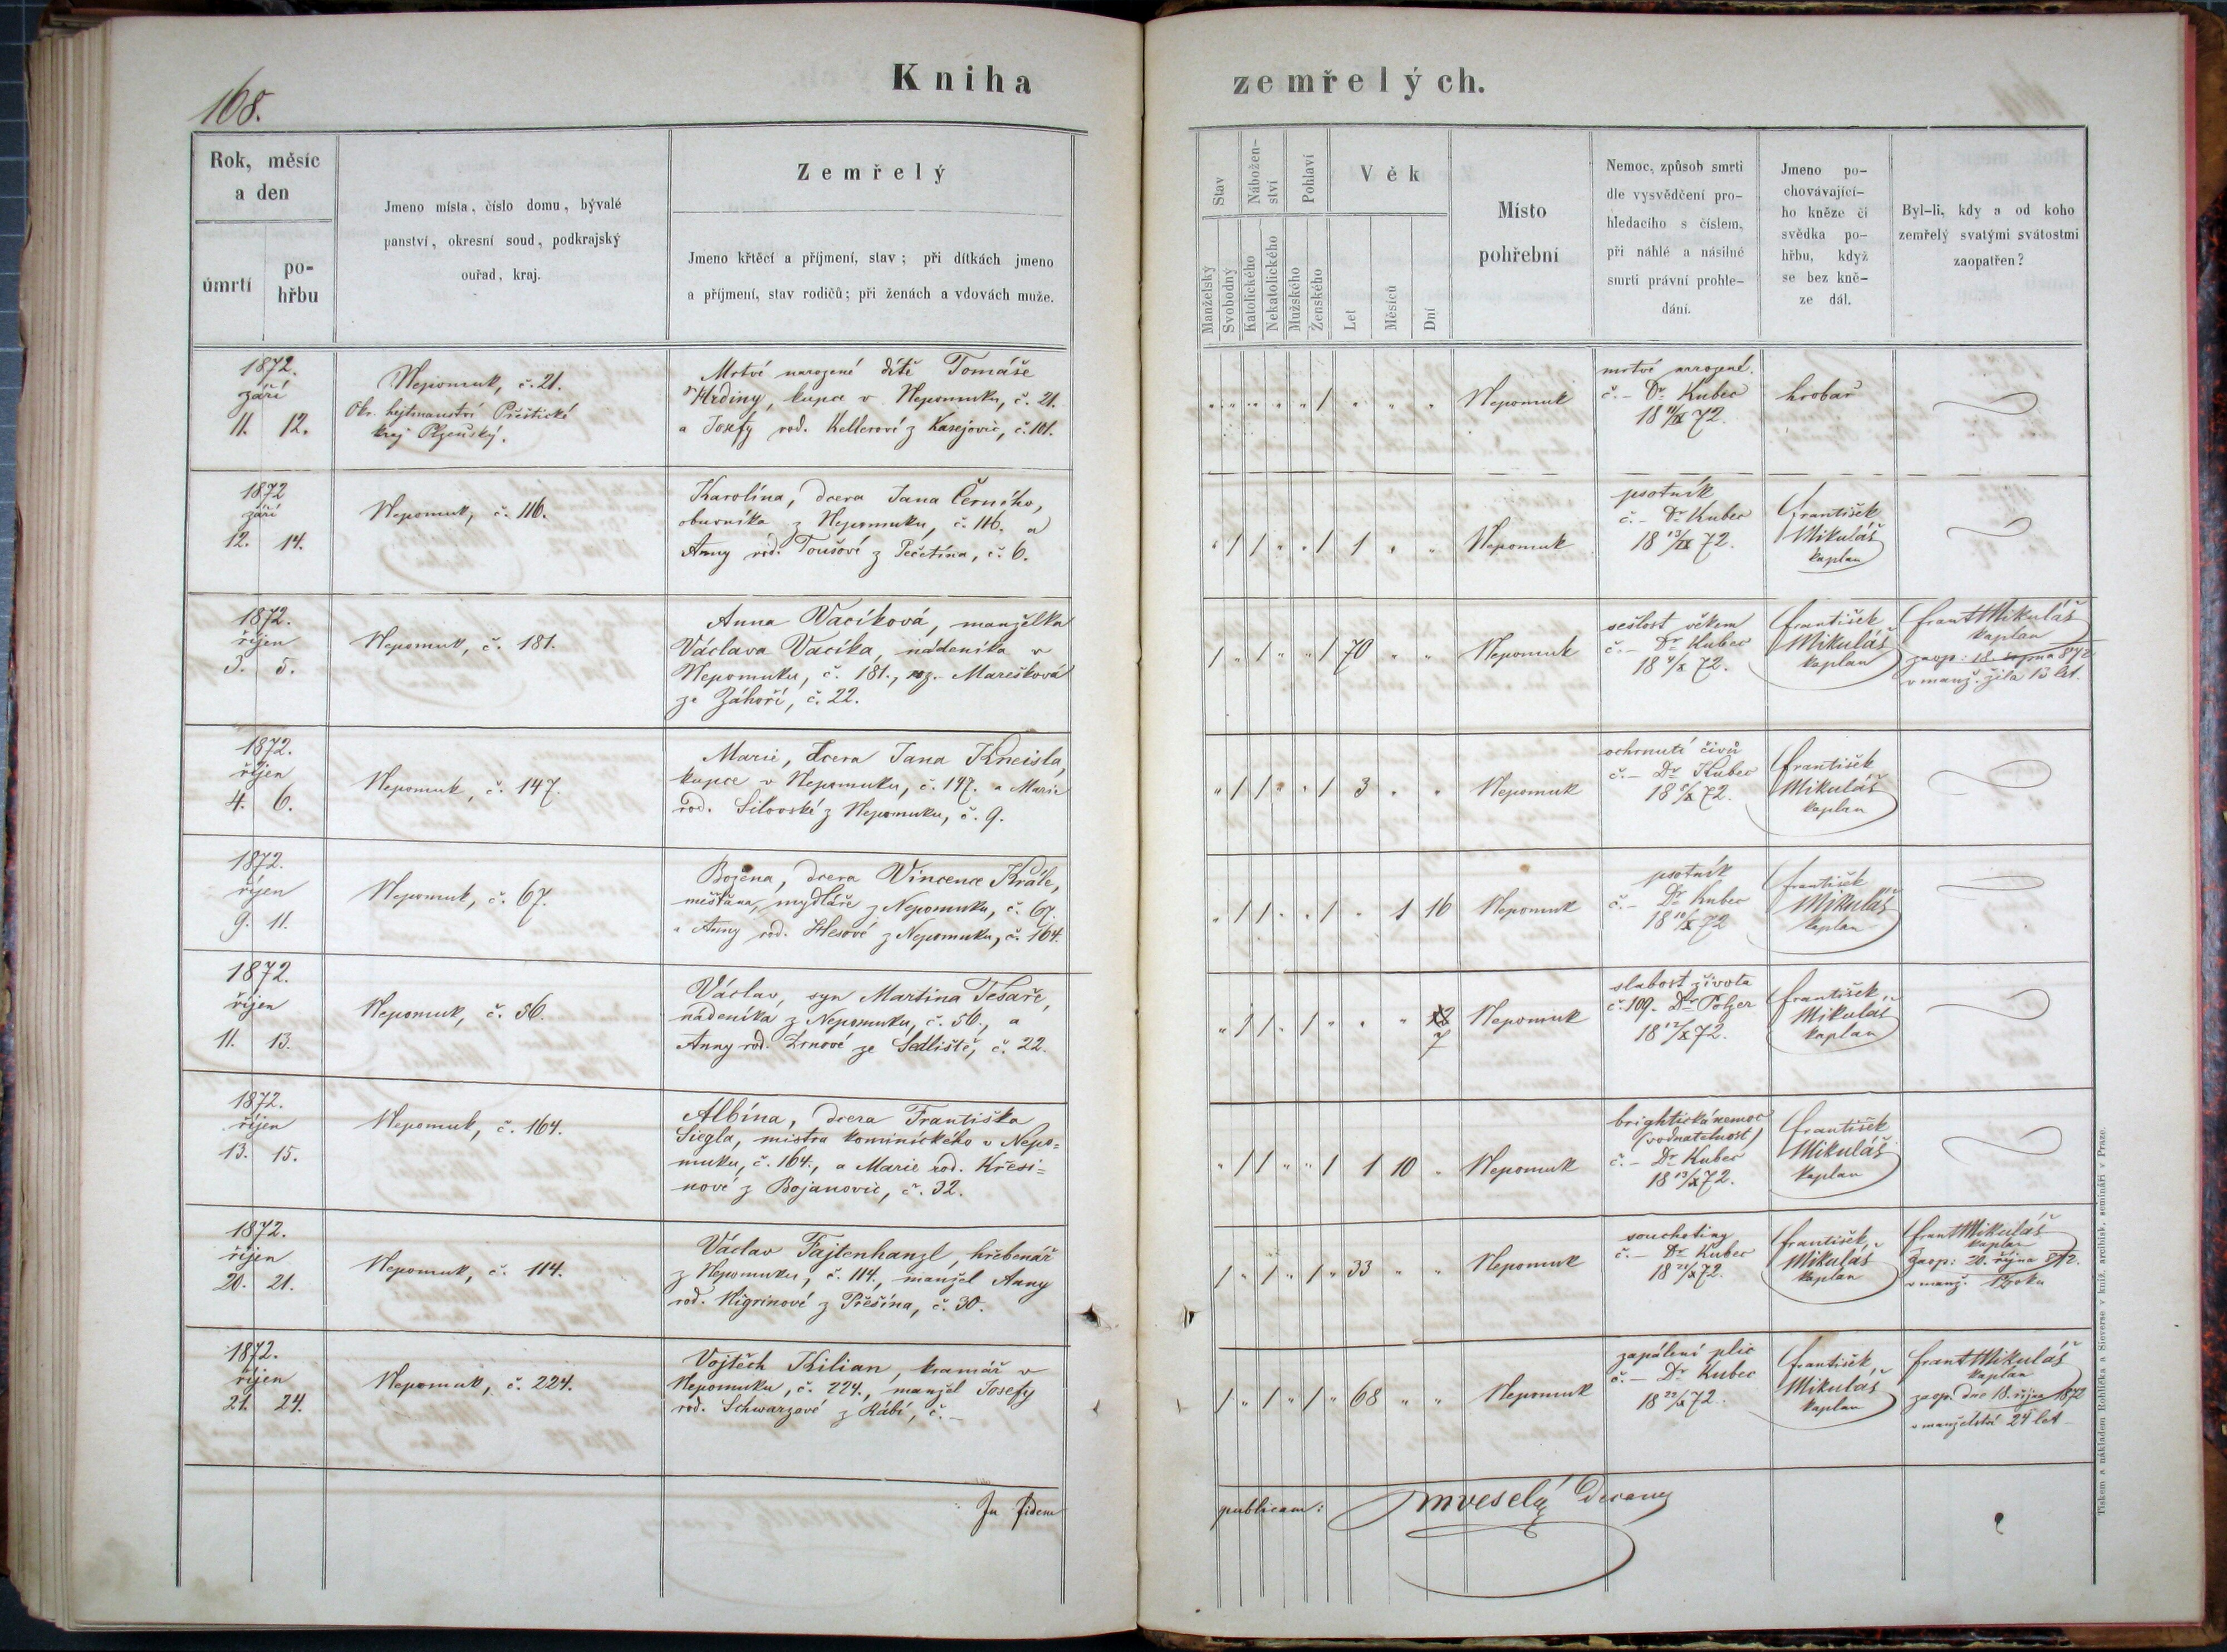 Kniha
zemřelých.
168.
Rok, měsíc
a den
úmrtí
po-
hřbu
Jmeno místa, číslo domu, bývalé
panství, okresní soud, podkrajský
ouřad, kraj.
Zemřelý
Jmeno křtěcí a příjmení, stav; při dítkách jmeno
a příjmení, stav rodičů; při ženách a vdovách muže.
Stav
Manželský
Svobodný
Nábožen-
ství
Katolického
Nekatolického
Pohlaví
Mužského
Ženského
Věk
Let
Měsíců
Dní
Místo
pohřební
Nemoc, způsob smrti
dle vysvědčení pro-
hledacího s číslem,
při náhlé a násilné
smrti právní prohle-
dání.
Jmeno po-
chovávající-
ho kněze či
svědka po-
hřbu, když
se bez kně-
ze dál.
Byl-li, kdy a od koho
zemřelý svatými svátostmi
zaopatřen?
1872.
září
11. 12.
Nepomuk, č. 21.
Okr. hejtmanství Přeštické
kraj Plzeňský.
Mrtvé narozené dítě Tomáše
Hrdiny, kupce v Nepomuku, č. 21.
a Josefy rod. Kellerové z Kasejovic, č. 101.
" " " " " 1 " " "
Nepomuk
mrtvé narozené.
č. – Dr. Kubec
18 11/IX 72.
hrobař
1872
září
12. 14.
Nepomuk, č. 116.
Karolína, dcera Jana Černího,
obuvníka z Nepomuku, č. 116. a
Anny rod. Toušové z Pečetína, č. 6.
" 1 1 " " 1 1 " "
Nepomuk
psotník
č. – Dr. Kubec
18 13/IX 72.
František
Mikuláš
kaplan
1872.
říjen
3. 5.
Nepomuk, č. 181.
Anna Vacíková, manželka
Václava Vacíka, nádeníka v
Nepomuku, č. 181., roz. Marešková
ze Záhoří, č. 22.
1 " 1 " " 1 70 " "
Nepomuk
sešlost věkem
č. – Dr. Kubec
18 4/X 72.
František
Mikuláš
kaplan
Frant Mikuláš
kaplan
zaop: 18. srpna 872
v manž. žila 13 let.
1872.
říjen
4. 6.
Nepomuk, č. 147.
Marie, dcera Jana Kneisla,
kupce v Nepomuku, č. 147. a Marie
rod. Silovské z Nepomuku, č. 9.
" 1 1 " " 1 3 " "
Nepomuk
ochrnutí čivů
č. – Dr. Kubec
18 5/X 72.
František
Mikuláš
kaplan
1872.
říjen
9. 11.
Nepomuk, č. 67.
Božena, dcera Vincence Krále,
měšťana, mydláře z Nepomuku, č. 67.
a Anny rod. Hesové z Nepomuku, č. 164.
" 1 1 " " 1 " 1 16
Nepomuk
psotník
č. – Dr. Kubec
18 10/X 72
František
Mikuláš
kaplan
1872.
říjen
11. 13.
Nepomuk, č. 56.
Václav, syn Martina Tesaře,
nádeníka z Nepomuku, č. 56., a
Anny rod. Zrnové ze Sedliště, č. 22.
" 1 1 " 1 " " " 7
Nepomuk
slabost života
č. 109. Dr. Polzer
18 12/X 72.
František
Mikuláš
kaplan
1872.
říjen
13. 15.
Nepomuk, č. 164.
Albína, dcera Františka
Siegla, mistra kominického v Nepo=
muku, č. 164., a Marie rod. Křesi=
nové z Bojanovic, č. 32.
" 1 1 " " 1 1 10 "
Nepomuk
brightická nemoc
(vodnatelnost)
č. – Dr. Kubec
18 13/X 72.
František
Mikuláš
kaplan
1872.
říjen
20. 21.
Nepomuk, č. 114.
Václav Fajtenhanzl, hřebenář
z Nepomuku, č. 114., manžel Anny
rod. Nigrinové z Přešína, č. 30.
1 " 1 " 1 " 33 " "
Nepomuk
souchotiny
č. – Dr. Kubec
18 21/X 72.
František
Mikuláš
kaplan
Frant Mikuláš
kaplan
Zaop: 20. října 872.
v manž. roku
1872.
říjen
21. 24.
Nepomuk, č. 224.
Vojtěch Kilian, kramář v
Nepomuku, č. 224., manžel Josefy
rod. Schwarzové z Rábí, č. –
1 " 1 " 1 " 68 " "
Nepomuk
zapálení plic
č. – Dr. Kubec
18 22/X 72.
František
Mikuláš
kaplan
Frant Mikuláš
kaplan
zaop. dne 18. října 1872
v manželství 24 let
In fidem
publicam:
Veselý Decanus
Tiskem a nákladem Rohlíčka a Sieverse v kníž. arcibisk. semináři v Praze.